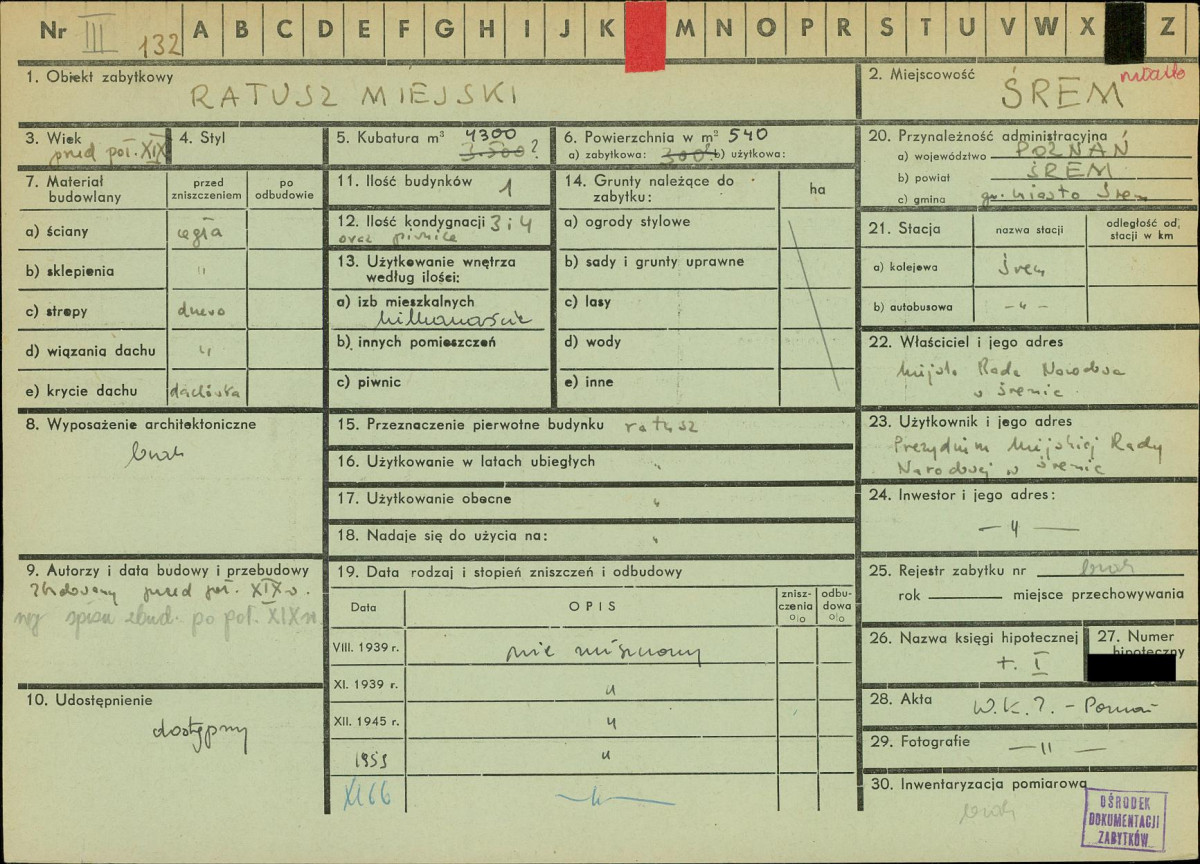 Nr III 132 A B C D E F G H I J K M N O P R S T U V W X Z
1. Obiekt zabytkowy
RATUSZ MIEJSKI
2. Miejscowość
miasto
ŚREM
3. Wiek
przed poł. XIX
4. Styl
5. Kubatura m³ 4300
3.500?
6. Powierzchnia w m² 540
a) zabytkowa: 300? b) użytkowa:
7. Materiał budowlany
przed zniszczeniem
po odbudowie
a) ściany cegła
b) sklepienia "
c) stropy drewno
d) wiązania dachu "
e) krycie dachu dachówka
8. Wyposażenie architektoniczne
brak
9. Autorzy i data budowy i przebudowy
Zbudowany przed poł. XIX w.
wg spisu zbud. po poł. XIX w.
10. Udostępnienie
dostępny
11. Ilość budynków 1
12. Ilość kondygnacji 3 i 4
oraz piwnice
13. Użytkowanie wnętrza
według ilości:
a) izb mieszkalnych
kilkanaście
b) innych pomieszczeń
c) piwnic
14. Grunty należące do
zabytku:
ha
a) ogrody stylowe
b) sady i grunty uprawne
c) lasy
d) wody
e) inne
15. Przeznaczenie pierwotne budynku ratusz
16. Użytkowanie w latach ubiegłych "
17. Użytkowanie obecne "
18. Nadaje się do użycia na: "
19. Data rodzaj i stopień zniszczeń i odbudowy
Data
OPIS
znisz-
czenia
o|o
odbu-
dowa
o|o
VIII. 1939 r. nie zniszczony
XI. 1939 r. "
XII. 1945 r. "
1953 "
XI 66 — " —
20. Przynależność administracyjna
a) województwo POZNAŃ
b) powiat ŚREM
c) gmina gr. miasto Śrem
21. Stacja
nazwa stacji
odległość od
stacji w km
a) kolejowa Śrem
b) autobusowa - " -
22. Właściciel i jego adres
Miejska Rada Narodowa
w Śremie
23. Użytkownik i jego adres
Prezydium Miejskiej Rady
Narodowej w Śremie
24. Inwestor i jego adres:
— " —
25. Rejestr zabytku nr brak
rok miejsce przechowywania
26. Nazwa księgi hipotecznej
t. I
27. Numer
hipoteczny
28. Akta
W.K.Z. - Poznań
29. Fotografie
— " —
30. Inwentaryzacja pomiarowa
brak
OŚRODEK
DOKUMENTACJI
ZABYTKÓW